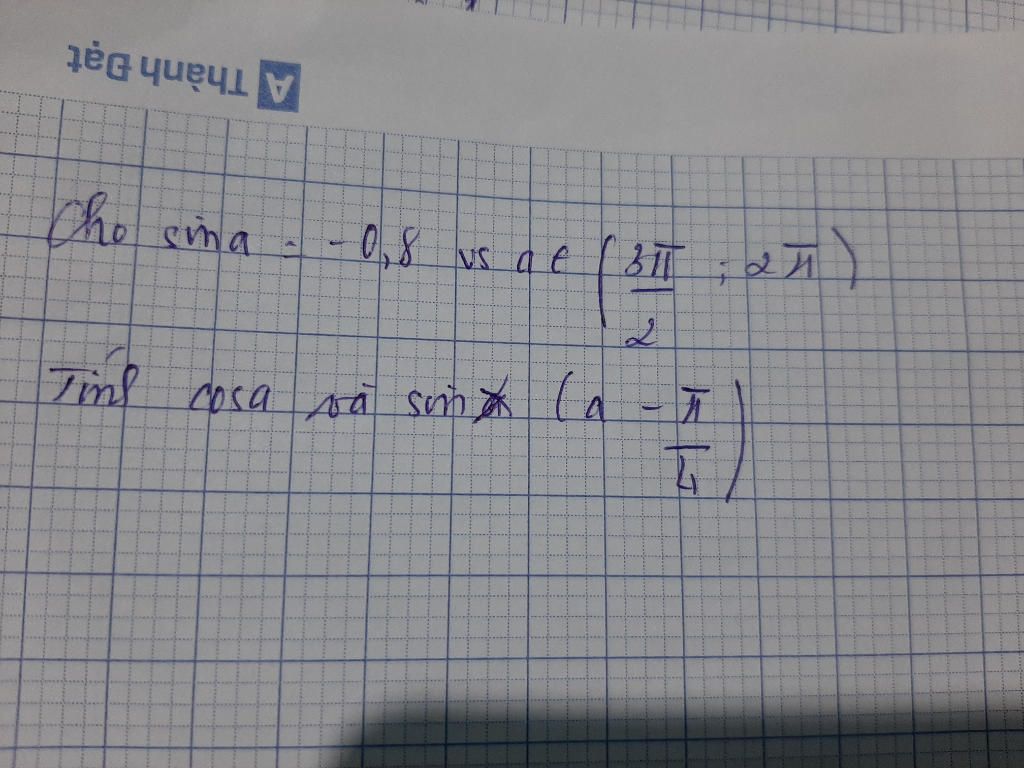 A Thành Đạt
Cho sina = -0,8 vs a ∈ (3π/2 ; 2π)
Tính cosa và sin (a - π/4)